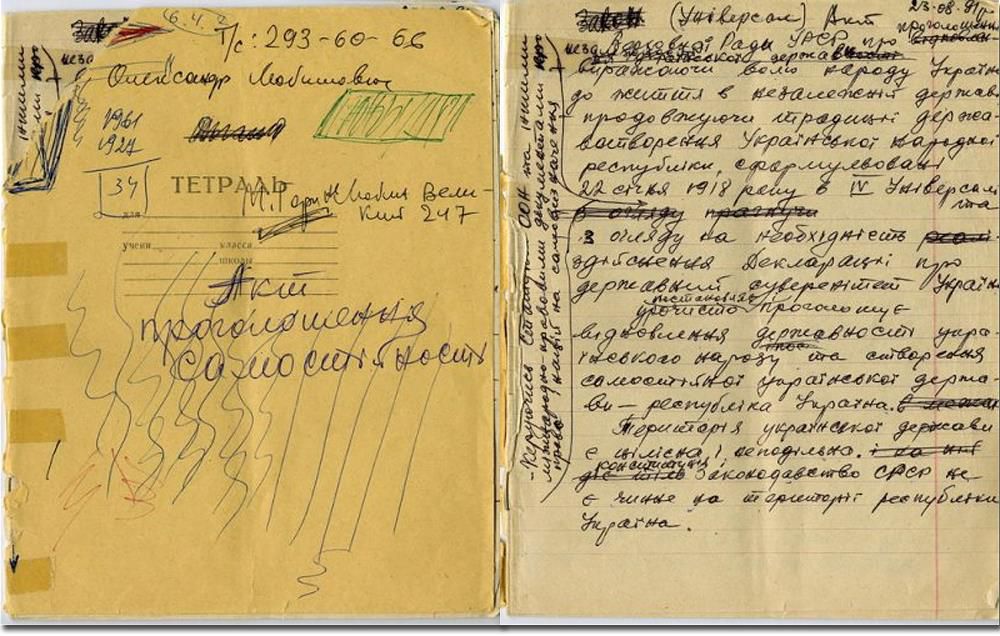 6.4.2
Т/с: 293-60-66
Олександр Любимович
1961
1927
34
ТЕТРАДЬ
М. Гарин Любин Вели-
кий 247
для
учени класса
школы
Акт
проголошення
самостійності
23-08-91р.
Закон (Універсал) Акт
проголошення
Верховної Ради УРСР про
української держав
виражаючи волю народу Україн
до життя в незалежній держав
продовжуючи традиції держа-
вотворення Української Народної
республіки, сформульовані
22 січня 1918 року в IV Універсалі
та
в огляду
з огляду на необхідність
здійснення Декларації про
державний суверенітет Україн
урочисто проголошує
відновлення державності укра-
їнського народу та створення
самостійної української держа-
ви — республіка Україна. в межах
Територія української держави
є цілісна і неподільна. і на ній
конституція і
діє тіль Законодавство СРСР не
є чинне на території республіки
Україна.
- Керуючись Статутом ООН та іншими
міжнародно-правовими документами про
право націй на самовизначення